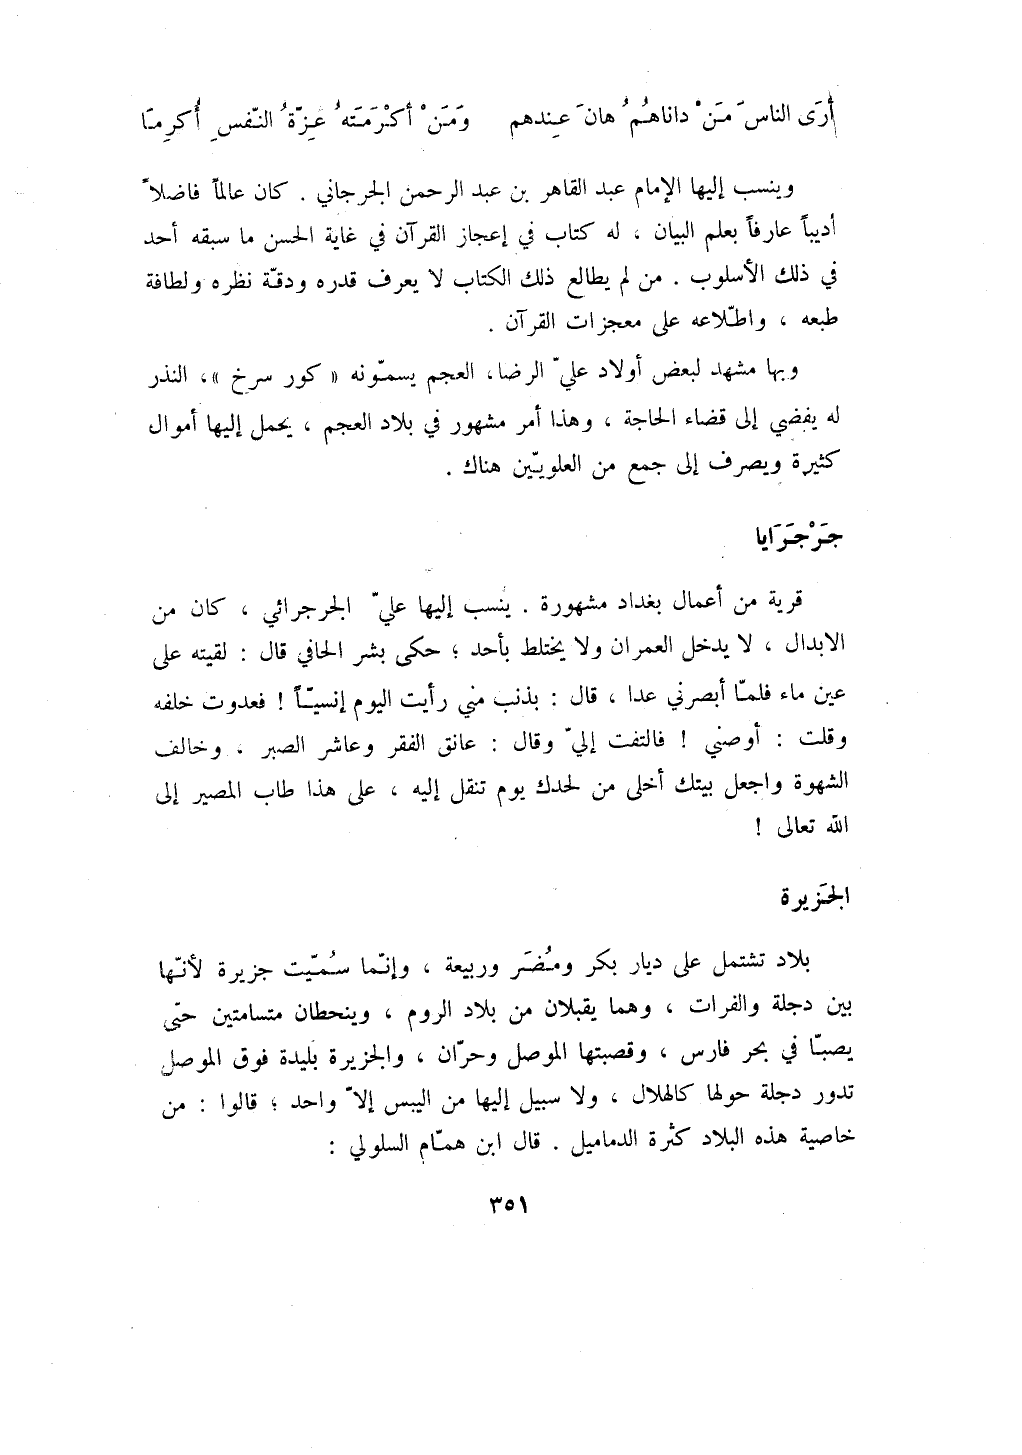 أرَى الناسَ مَنْ داناهُمُ هانَ عندهم ومَنْ أكْرَمَتهُ عِزّةُ النّفسِ أُكرِمَا
وينسب إليها الإمام عبد القاهر بن عبد الرحمن الجرجاني . كان عالماً فاضلاً
أديباً عارفاً بعلم البيان ، له كتاب في إعجاز القرآن في غاية الحسن ما سبقه أحد
في ذلك الأسلوب . من لم يطالع ذلك الكتاب لا يعرف قدره ودقّة نظره ولطافة
طبعه ، واطّلاعه على معجزات القرآن .
وبها مشهد لبعض أولاد عليّ الرضا، العجم يسمّونه « كور سرخ »، النذر
له يفضي إلى قضاء الحاجة ، وهذا أمر مشهور في بلاد العجم ، يحمل إليها أموال
كثيرة ويصرف إلى جمع من العلويّين هناك .
جَرْجَرَايا
قرية من أعمال بغداد مشهورة . ينسب إليها عليّ الجرجرائي ، كان من
الابدال ، لا يدخل العمران ولا يختلط بأحد ؛ حكى بشر الحافي قال : لقيته على
عين ماء فلمّا أبصرني عدا ، قال : بذنب مني رأيت اليوم إنسيّاً ! فعدوت خلفه
وقلت : أوصني ! فالتفت إليّ وقال : عانق الفقر وعاشر الصبر ، وخالف
الشهوة واجعل بيتك أخلى من لحدك يوم تنقل إليه ، على هذا طاب المصير إلى
الله تعالى !
الجَزيرة
بلاد تشتمل على ديار بكر ومُضَر وربيعة ، وإنّما سُمّيت جزيرة لأنّها
بين دجلة والفرات ، وهما يقبلان من بلاد الروم ، وينحطان متسامتين حتّى
يصبّا في بحر فارس ، وقصبتها الموصل وحرّان ، والجزيرة بليدة فوق الموصل
تدور دجلة حولها كالهلال ، ولا سبيل إليها من اليبس إلاّ واحد ؛ قالوا : من
خاصية هذه البلاد كثرة الدماميل . قال ابن همّام السلولي :
٣٥١